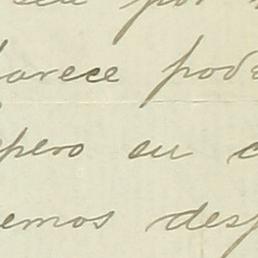 por
parece pod
pero en c
emos des